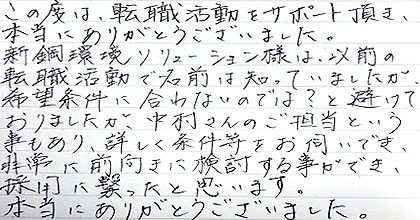 この度は、転職活動をサポート頂き、
本当にありがとうございました。
新鋼環境ソリューション様は、以前の
転職活動で名前は知っていましたが、
希望条件に合わないのでは？と避けて
おりましたが、中村さんのご担当という
事もあり、詳しく条件等をお伺いでき、
非常に前向きに検討する事ができ、
採用に繋ったと思います。
本当にありがとうございました。